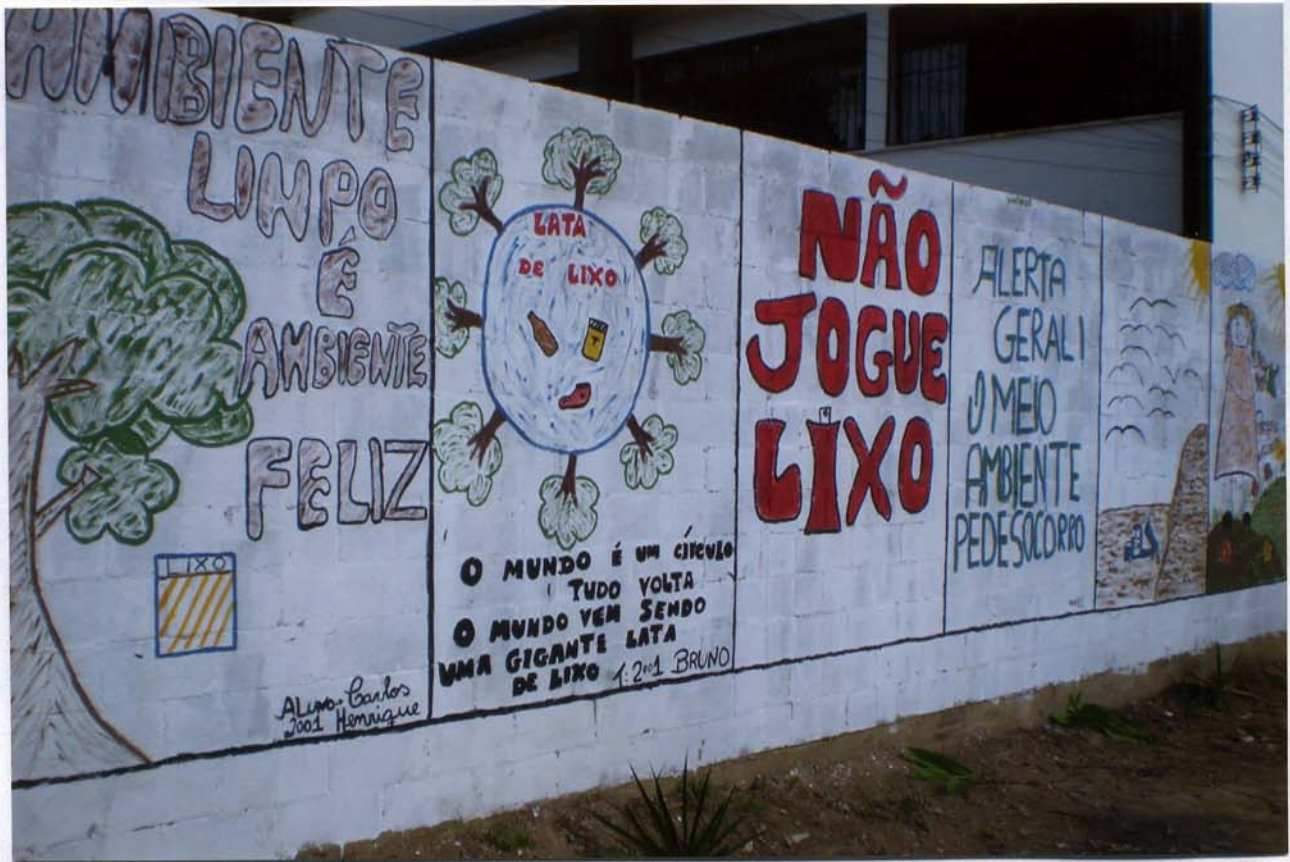 AMBIENTE
LIMPO
É
AMBIENTE
FELIZ
LIXO
ALUNO: Carlos
2001 Henrique
LATA
DE LIXO
O MUNDO É UM CÍRCULO
TUDO VOLTA
O MUNDO VEM SENDO
UMA GIGANTE LATA
DE LIXO T:2001 BRUNO
NÃO
JOGUE
LIXO
ALERTA
GERAL!
O MEIO
AMBIENTE
PEDE SOCORRO